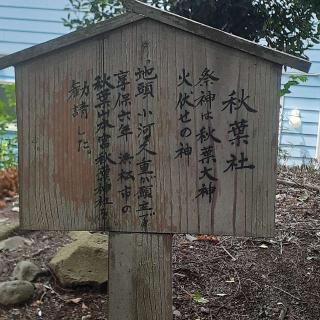 秋葉社
祭神は秋葉大神
火伏せの神
地頭 小河久重が願主で
享保六年 浜松市の
秋葉山本宮秋葉神社を
勧請した。